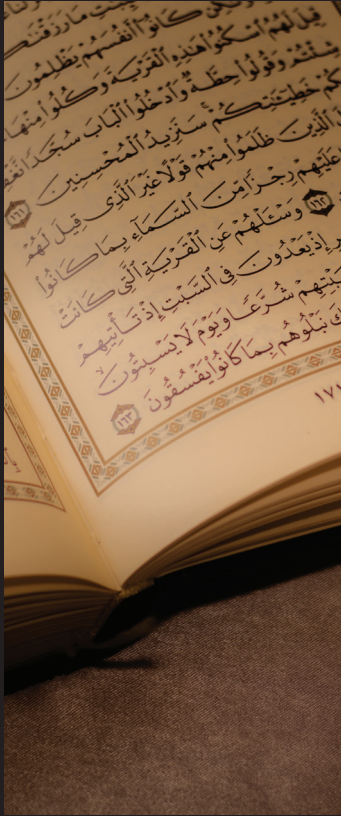 مَا رَزَقْنَٰكُمْ
كَانُوٓا۟ أَنفُسَهُمْ يَظْلِمُونَ
قِيلَ لَهُمُ ٱسْكُنُوا۟ هَٰذِهِ ٱلْقَرْيَةَ وَكُلُوا۟ مِنْهَا
شِئْتُمْ وَقُولُوا۟ حِطَّةٌ وَٱدْخُلُوا۟ ٱلْبَابَ سُجَّدًا
خَطِيٓـَٰٔتِكُمْ سَنَزِيدُ ٱلْمُحْسِنِينَ ١٦١
ٱلَّذِينَ ظَلَمُوا۟ مِنْهُمْ قَوْلًا غَيْرَ ٱلَّذِى قِيلَ لَهُمْ
عَلَيْهِمْ رِجْزًا مِّنَ ٱلسَّمَآءِ بِمَا كَانُوا۟
١٦٢ وَسْـَٔلْهُمْ عَنِ ٱلْقَرْيَةِ ٱلَّتِى كَانَتْ
إِذْ يَعْدُونَ فِى ٱلسَّبْتِ إِذْ تَأْتِيهِمْ
شُرَّعًا وَيَوْمَ لَا يَسْبِتُونَ
نَبْلُوهُم بِمَا كَانُوا۟ يَفْسُقُونَ ١٦٣